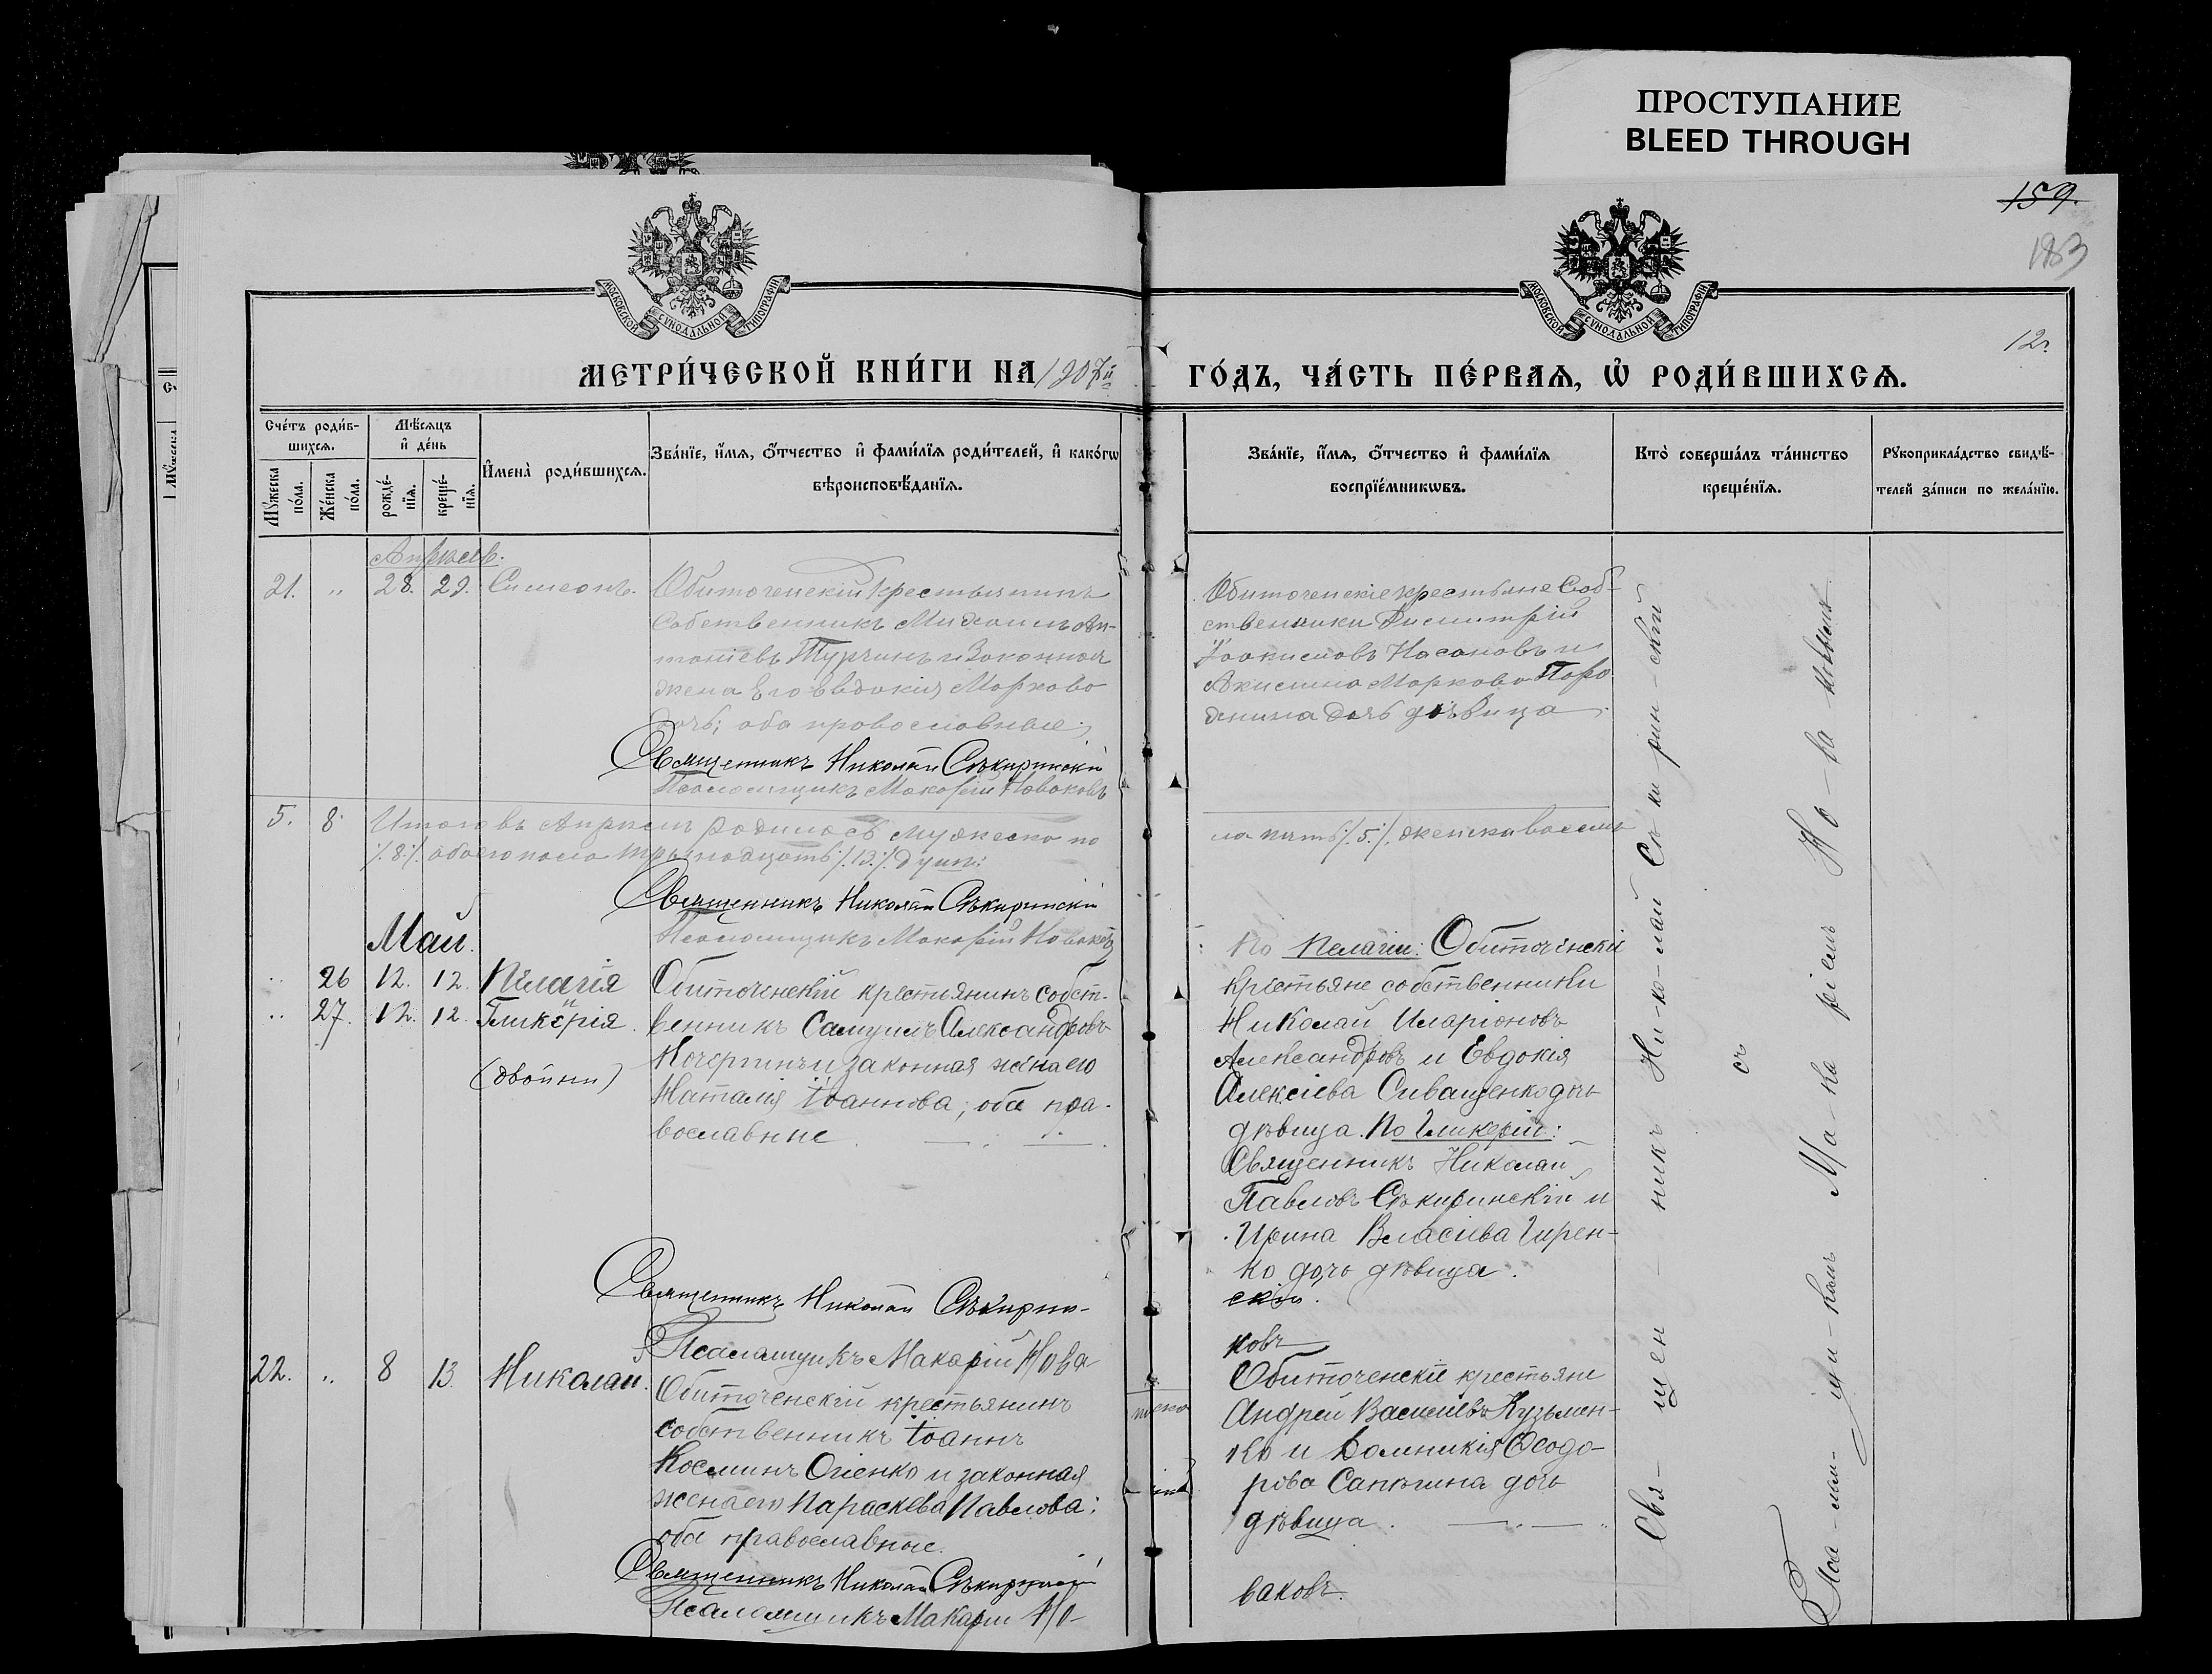 ПРОСТУПАНИЕ
BLEED THROUGH
159.
183
МОСКОВСКОЙ СУНОДАЛЬНОЙ ТИПОГРАФІИ
МОСКОВСКОЙ СУНОДАЛЬНОЙ ТИПОГРАФІИ
12.
МЕТРИ́ЧЕСКОЙ КНИ́ГИ НА 1907й
ГО́ДЪ, ЧА́СТЬ ПЕ́РВАѦ, Ѡ҆ РОДИ́ВШИХСѦ.
Сче́тъ роди́в-
шихсѧ.
Мꙋ́жеска
по́ла.
Же́нска
по́ла.
Мѣ́сѧцъ
и҆ де́нь
рожде́-
нїѧ.
креще́-
нїѧ.
И҆мена̀ роди́вшихсѧ.
Зва́нїе, и҆́мѧ, ѻ҆́тчество и҆ фами́лїѧ роди́телей, и҆ како́гѡ
вѣроисповѣ́данїѧ.
Зва́нїе, и҆́мѧ, ѻ҆́тчество и҆ фами́лїѧ
воспрїе́мникѡвъ.
Кто̀ соверша́лъ та́инство
креще́нїѧ.
Рꙋкоприкла́дство свидѣ́-
телей за́писи по жела́нїю.
Апрѣль.
21. „ 28. 29. Симеонъ.
Обиточенскій крестьянинъ
собственникъ Михаилъ Ан-
тоніевъ Турчинъ и законная
жена Его Евдокія Маркова
дочь; оба православные.
Священникъ Николай Сѣкиринскій
Псаломщикъ Макарій Новаковъ
Обиточенскіе крестьяне Соб-
ственники Димитрій
Іоакимовъ Насановъ и
Акилина Маркова Поро
днина дочь дѣвица.
5. 8. Итого въ Апрѣлѣ родилось мужеска по
ла пять ./.5./. женска восемь
./.8./. обоего пола тринадцать ./.13./. душъ.
Священникъ Николай Сѣкиринскій
Псаломщикъ Макарій Новаковъ
Май.
„ 26 12. 12. Пелагія
и
„ 27. 12. 12. Гликерія.
(двойни)
Обиточенскій крестьянинъ собст-
венникъ Самуилъ Александровъ
Кочергинъ и законная жена его
Наталія Іоаннова; оба пра-
вославные
По Пелагіи: Обиточенскіе
крестьяне собственники
Николай Иларіоновъ
Александровъ и Евдокія
Алексіева Сиващенко дочь
дѣвица. По Гликеріи:
Священникъ Николай
Павловъ Сѣкиринскій и
Ирина Власіева Гирен-
ко дочь дѣвица.
Священникъ Николай Сѣкирин-
скій.
Псаломщикъ Макарій Нова
ковъ
22. „ 8 13. Николай.
Обиточенскій крестьянинъ
собственникъ Іоаннъ
Косминъ Огіенко и законная
жена его Параскева Павлова;
оба православные.
Священникъ Николай Сѣкиринскій
Псаломщикъ Макарій Но-
Обиточенскіе крестьяне
Андрей Василіевъ Кузьмен-
ко и Домникія Ѳеодо-
рова Сапѣгина дочь
дѣвица.
ваковъ.
Свя-щен-никъ Ни-ко-лай Сѣ-ки-рин-скій
съ
Пса-лом-щи-комъ Ма-ка-ріемъ Но-ва-